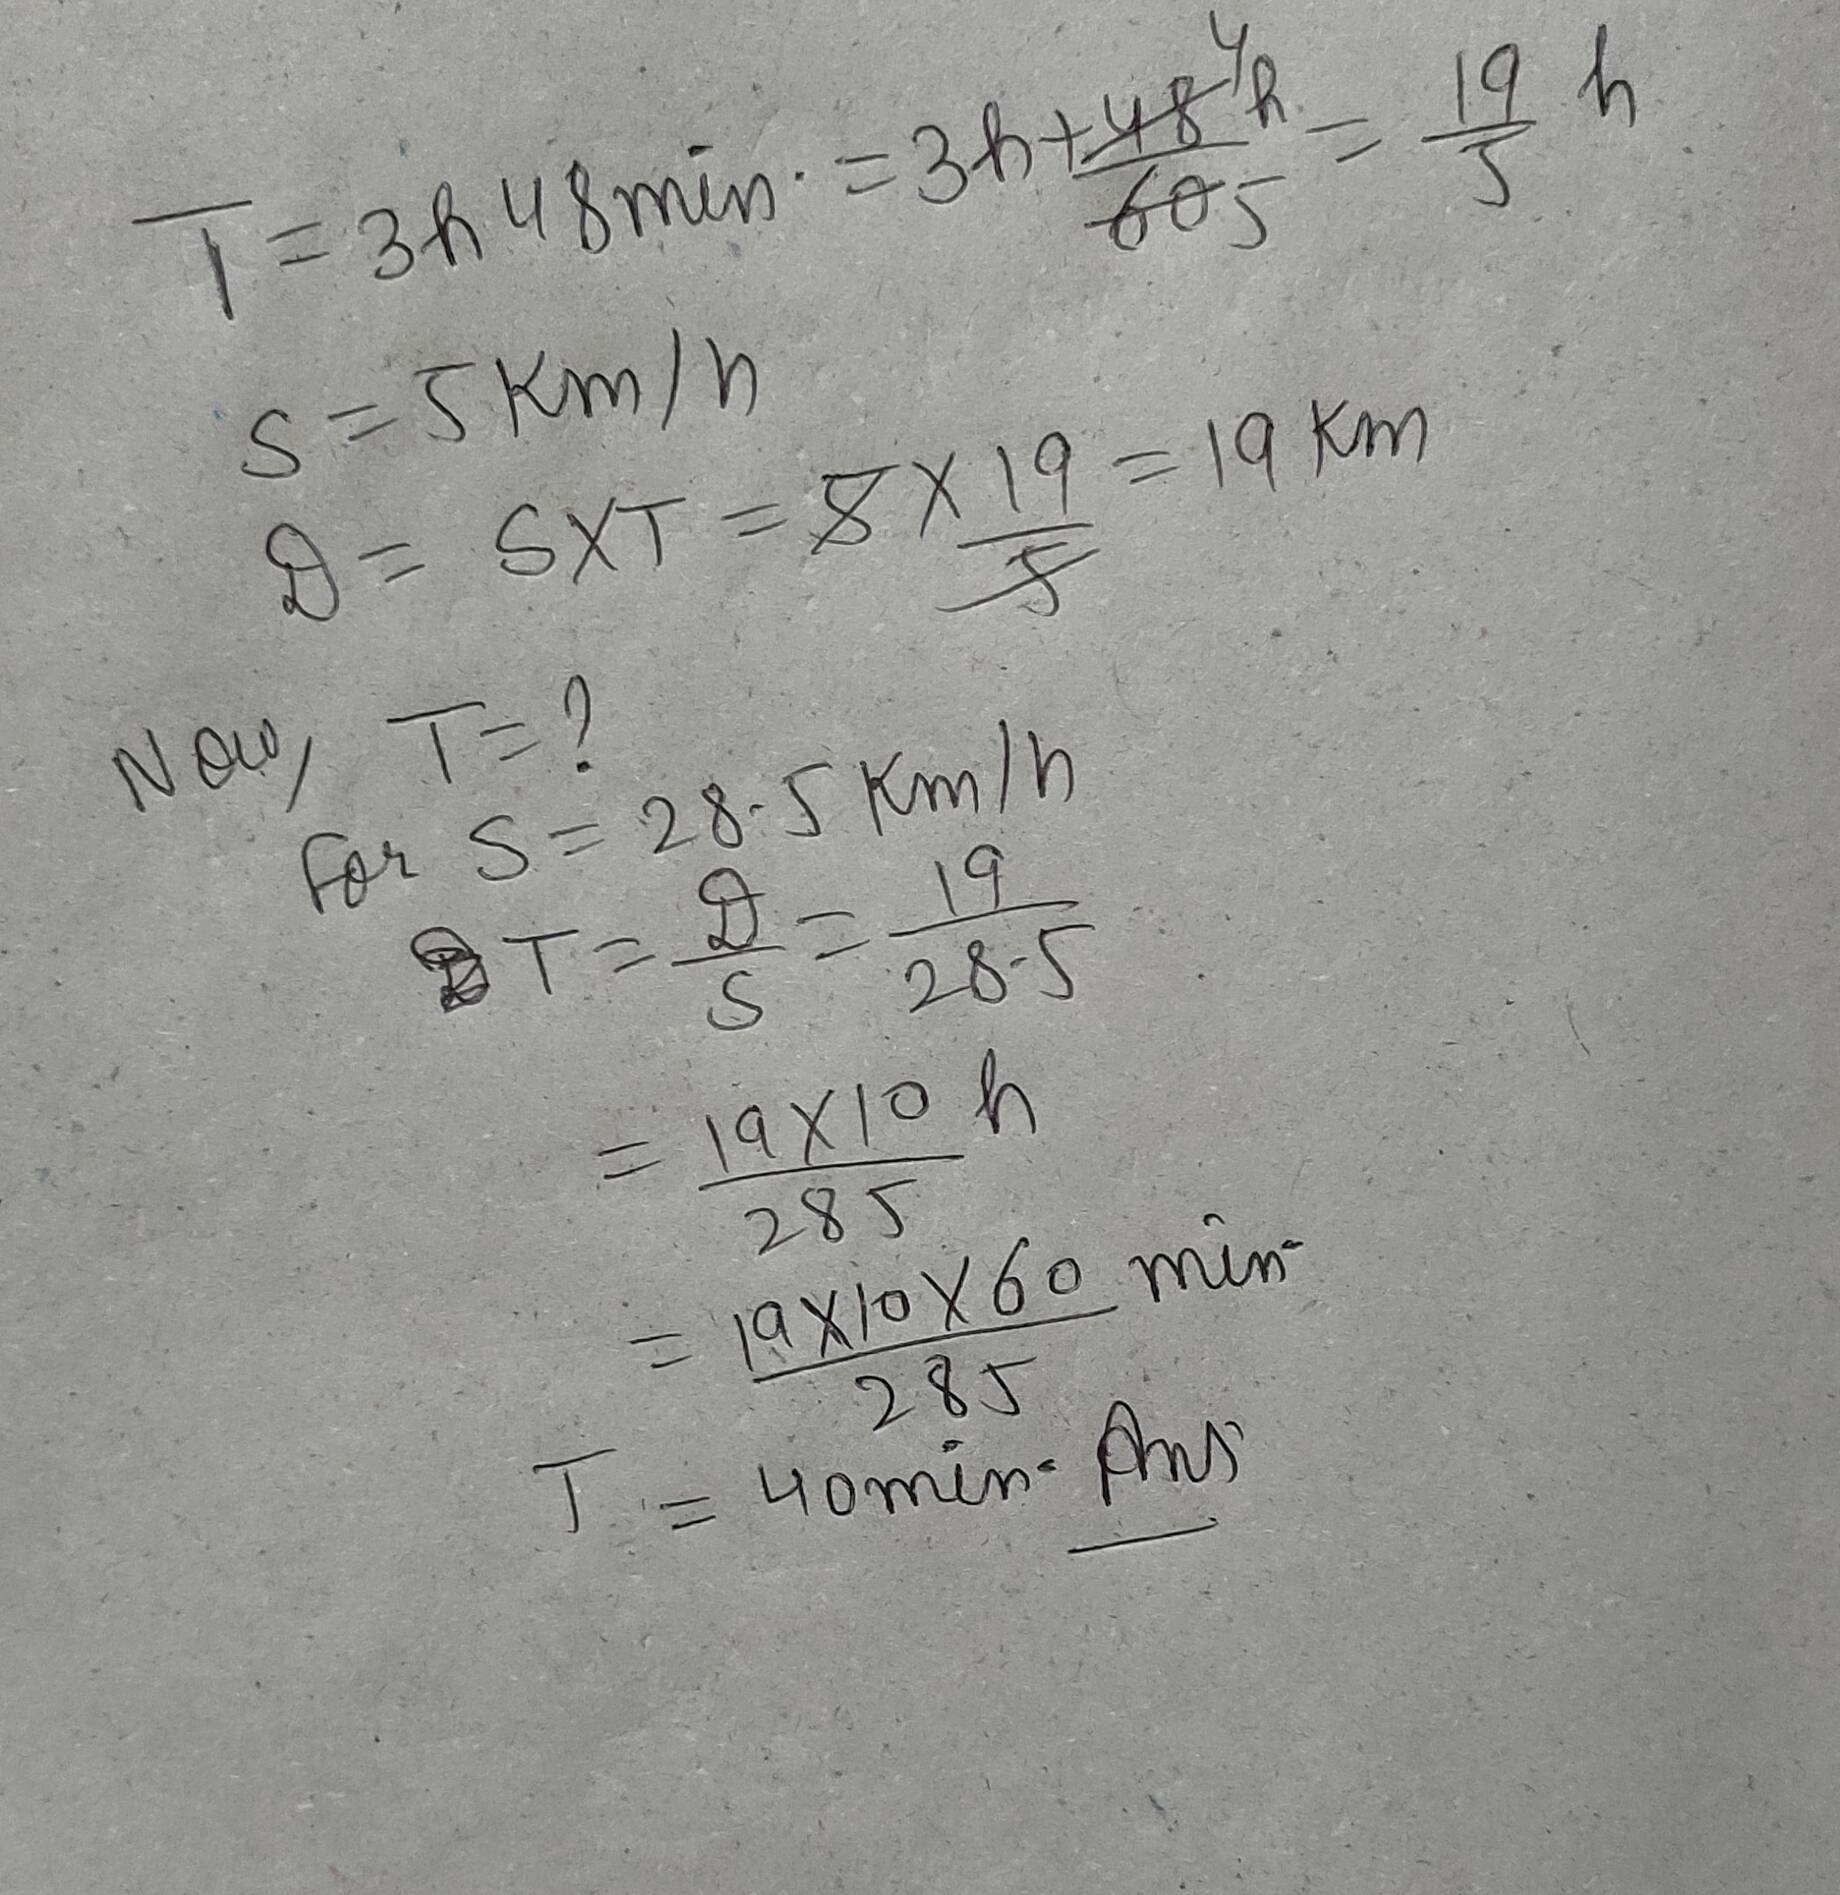 T = 3h 48min. = 3h + 48/60 4/5 h = 19/5 h
S = 5 Km/h
D = S×T = 5 × 19/5 = 19 Km
Now, T = ?
For S = 28.5 Km/h
T = D/S = 19/28.5
= 19×10/285 h
= 19×10×60/285 min.
T = 40min. Ans